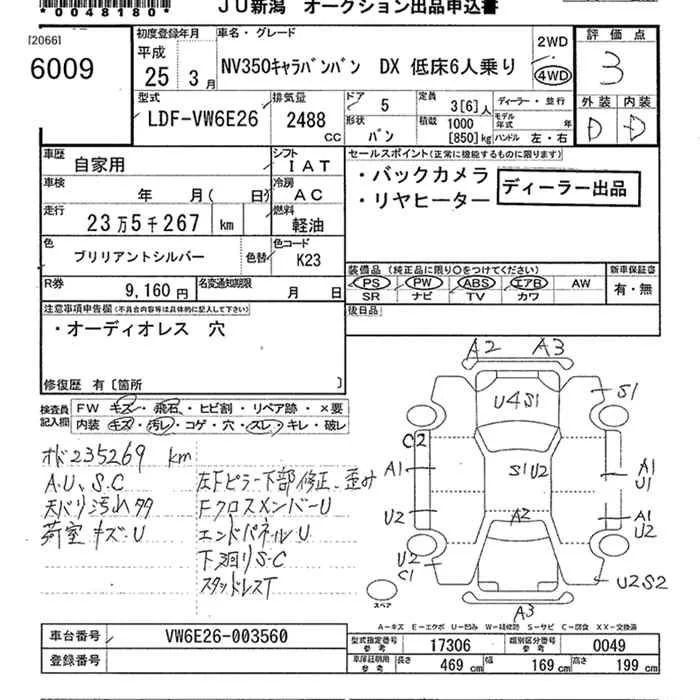 *0048180*
JU新潟 オークション出品申込書
[2066]
6009
初度登録年月
平成
25年3月
車名・グレード
NV350キャラバンバン DX 低床6人乗り
2WD
4WD
評価点
3
外装 内装
D D
型式
LDF-VW6E26
排気量
2488
CC
ドア
5
定員
3[6]人
ディーラー・並行
形状
バン
積載
1000
[850]kg
モデル年式 年
ハンドル 左・右
車歴
自家用
シフト
IAT
車検
年 月( 日)
冷房
AC
走行
23万5千267 km
燃料
軽油
色
ブリリアントシルバー
色替
色コード
K23
R券
9,160円
名変通知期限
月 日
セールスポイント(正常に機能するものに限ります)
・バックカメラ
・リヤヒーター
ディーラー出品
装備品(純正品に限り○をつけてください)
PS PW ABS エアB AW
SR ナビ TV カワ
新車保証書
有・無
後日品
注意事項申告欄(不具合内容等は具体的に記入して下さい)
・オーディオレス 穴
修復歴 有〔箇所 〕
検査員記入欄
FW キズ・飛石・ヒビ割・リペア跡・×要
内装 キズ・汚レ・コゲ・穴・スレ・キレ・破レ
オド235269 km
A.U.S.C
天バリ汚れ
荷室キズ・U
左Fピラー下部修正、歪み
FクロスメンバーU
エンドパネルU
下廻りS.C
スタッドレスT
A2 A3
U4S1
S1
C2
A1
S1U2
A1
U1
U2
A2
A1
U2
U2
C1
U2S2
A3
スペア
A-キズ E-エクボ U-凹み W-補修跡 S-サビ C-腐食 XX-交換済
車台番号
VW6E26-003560
登録番号
型式指定番号
参考
17306
類別区分番号
参考
0049
車庫証明用
参考
長さ
469 cm
幅
169 cm
高さ
199 cm